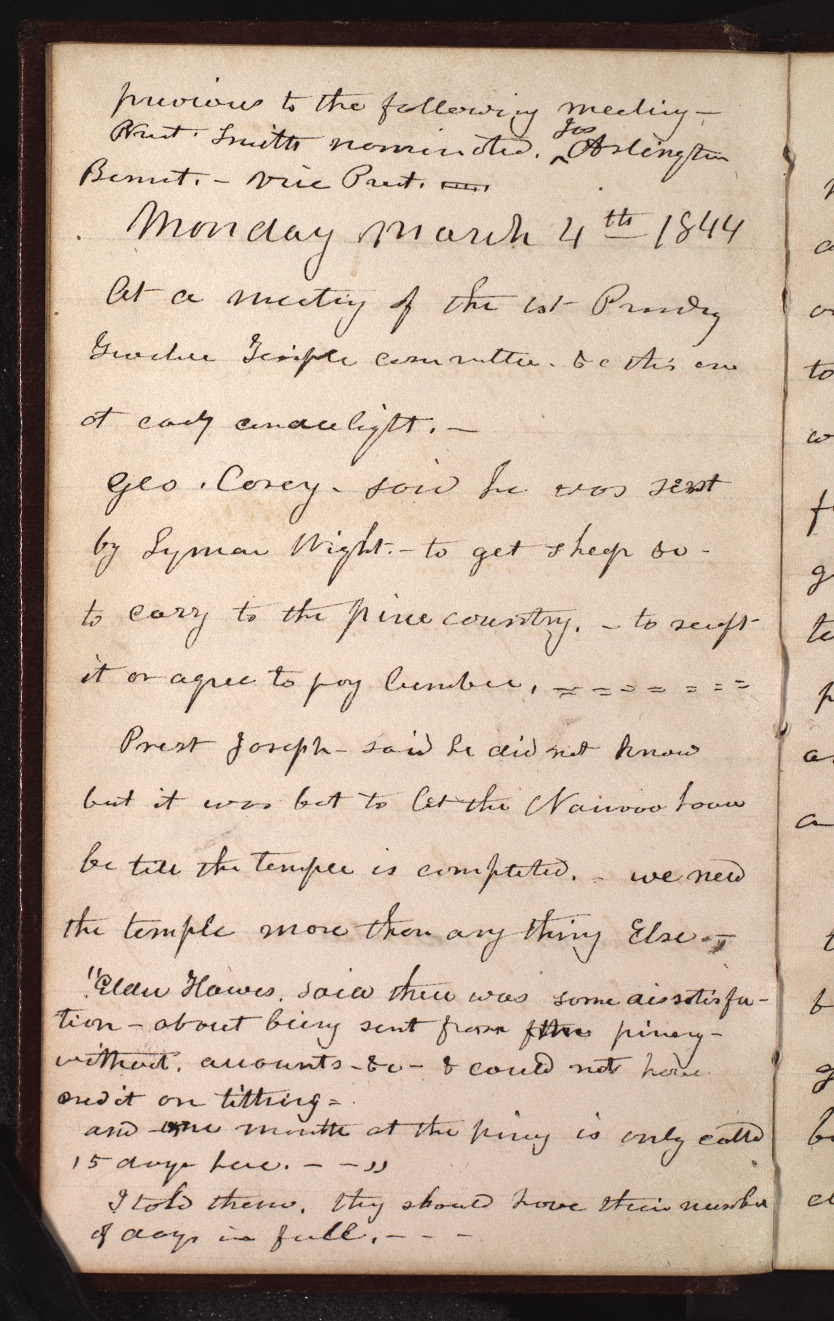 previous to the following meeting—
Prest. Smith nominated. Jas Arlington
Bennet. — Vice Prest.
Monday March 4th 1844
At a meeting of the 1st Presidency
Twelve Temple committee. &c this eve
at early candlelight. —
Geo. Corey. said he was sent
by Lyman Wight. — to get sheep &c -
to carry to the pine country. — to receipt
it or agree to pay lumber. = = = = = = =
Prest Joseph — said he did not know
but it was bet to let the Nauvoo house
be till the temple is completed. - we need
the temple more than any thing Else —
"Elder Hawes. said there was some dissatisfac-
tion — about being sent from the pinery —
without. accounts - &c — & could not have
credit on tithing =
and one month at the piney is only called
15 days here. — — "
I told them. they should have their number
of days in full. — — —